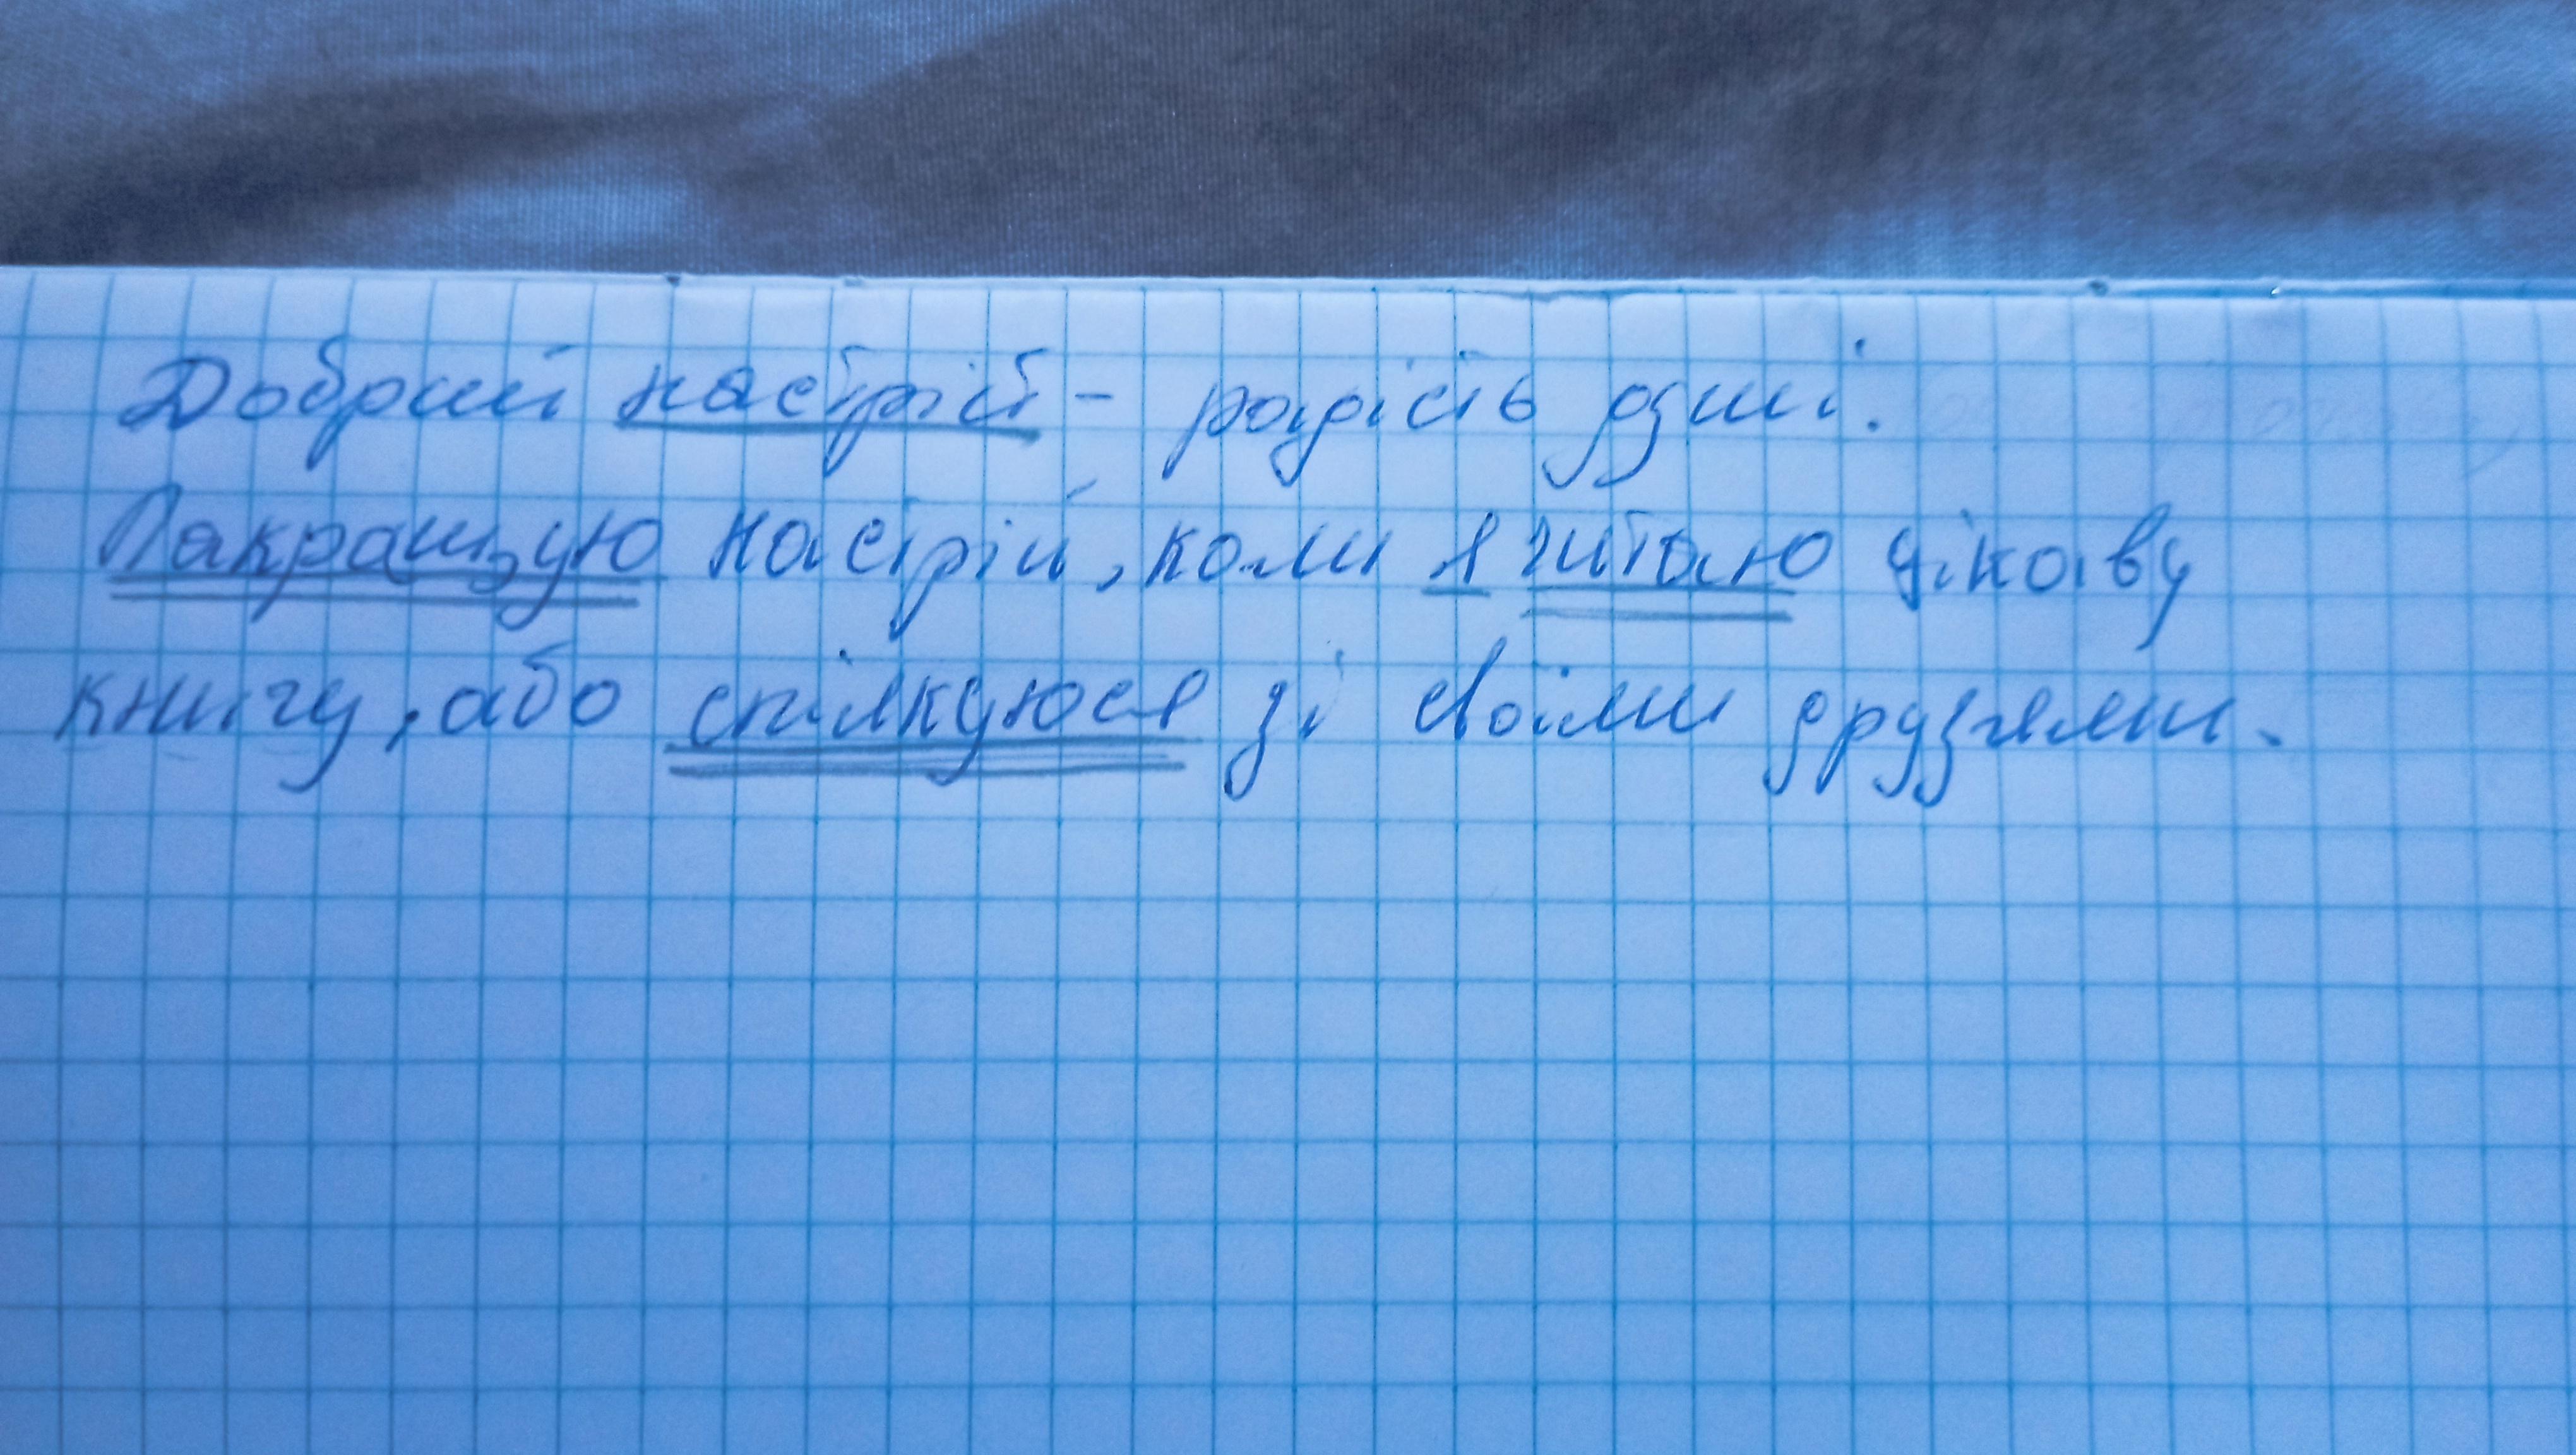 Добрий настрій - радість душі.
Покращую настрій, коли я читаю цікаву
книгу, або спілкуюся зі своїми друзями.